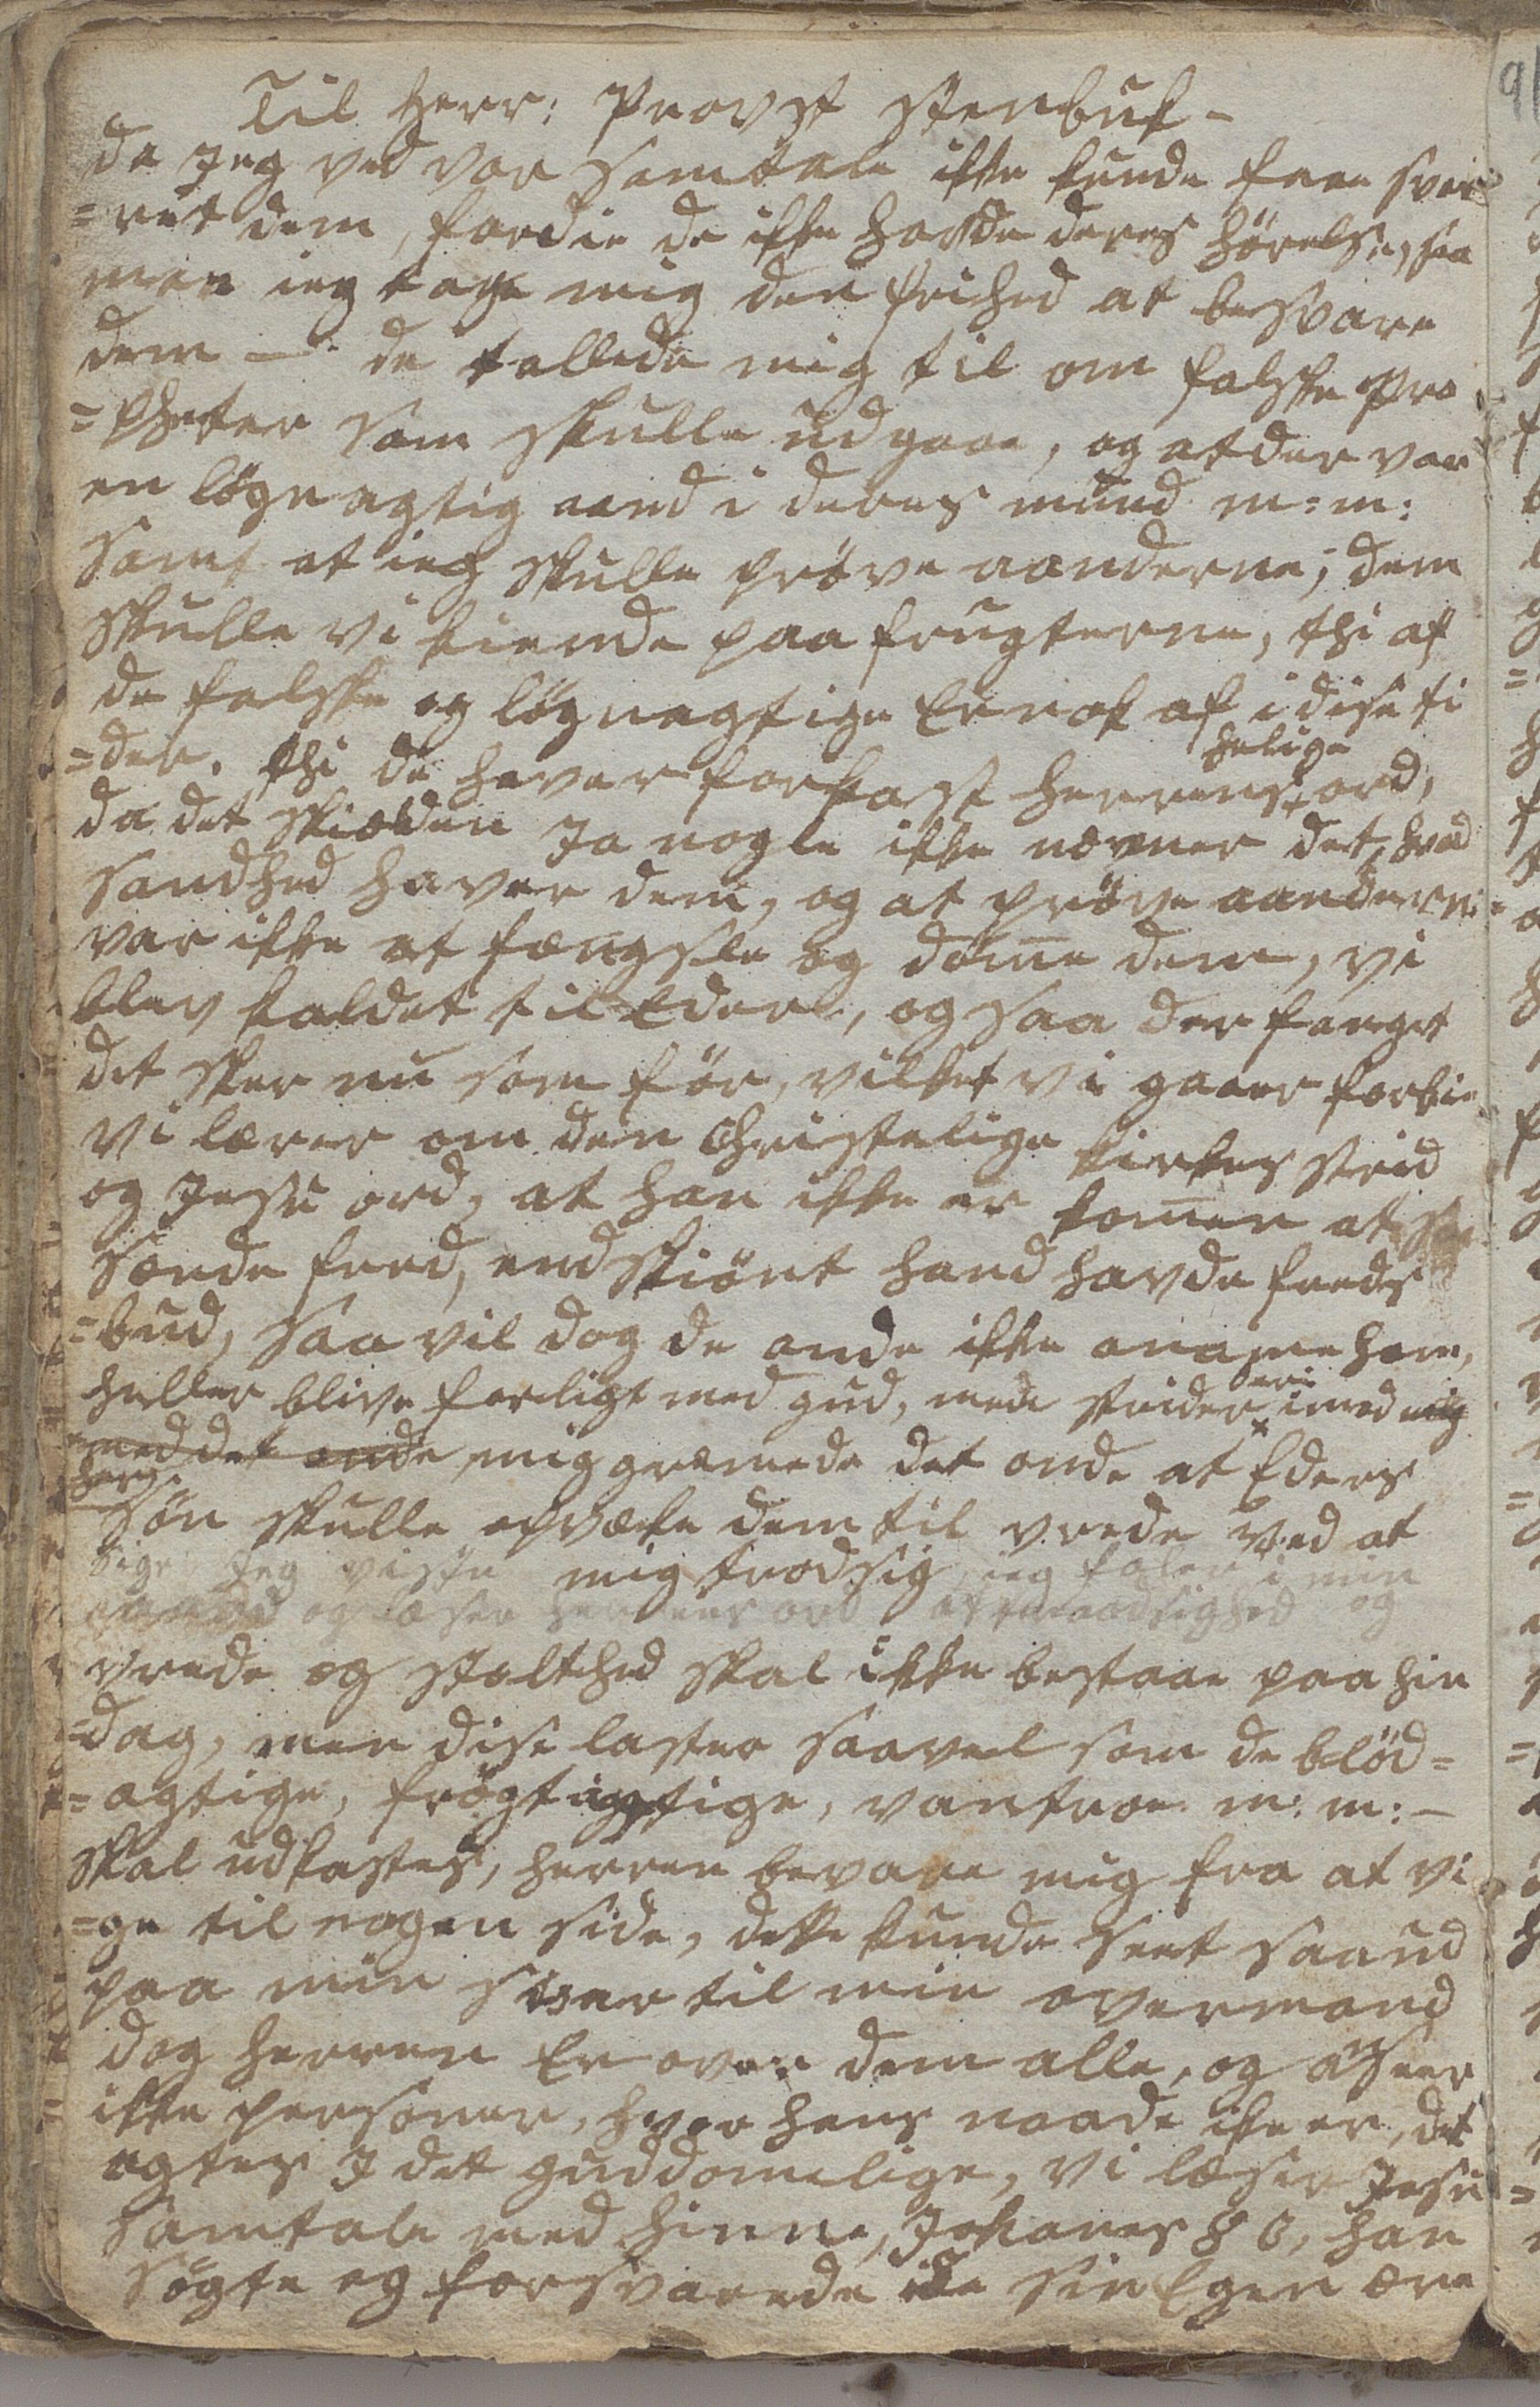 Til Herr: Provst Stenbuk-
da Jeg ved vor samtale ikke kunde faae sva
=ret dem, fordie de ikke hafde deres hörelse, saa
maa ieg tage mig den frihed at besvare
dem — de tallede mig til om falske Pro
=pheter som skulle udgaae, og at der var
en lögnagtig aand i deres mund m:m:
samt at ieg skulle pröve aanderne; dem
skulle vi kiende paa frugterne, thi af
de falske og lögnagtige Er nok af i dise ti
=der. thi de haver forkast herrens helige ord,
da det skielden Ja nogle ikke nævner det, hvad
sandhed haver dem, og at pröve aanderne
var ikke at fængsle og dömme dem, vi
blev kaldet til Eder, og saa der fanget
det skeer nu som för, vilket vi gaaer forbie
vi lærer om den Christelige kirkes strid
og Jesu ord, at han ikke er kommen at
sende fred, endskiönt hand havde freds
=bud, saa vil dog de onde ikke aname ham,
heller blive forligt med gud, men strider imod mig
med det onde mig græmede det onde at Eders
sön skulle opvæke dem til vrede ved at
sige Jeg viste mig trodsig, ieg föler i min
aand og læser herrens ord at trodsighed og
vrede og stolthed skal ikke bestaae paa hin
=dag, men dise laster saavel som de blöd=
=agtige, frögtagtige, vantroe m:m:-
skal udkastes, herren bevare mig fra at vi
=ge til nogen side, dette kunde seet saa ud
paa min svar til min overmand
dog herren Er over dem alle, og anseer
ikke personer, hvor hans naade ike er, det
agtes I det guddomelige, vi læser Jesu
samtale med hinne, Johanes 8 C, han
sögte og forsvarede ike sin Egen ære